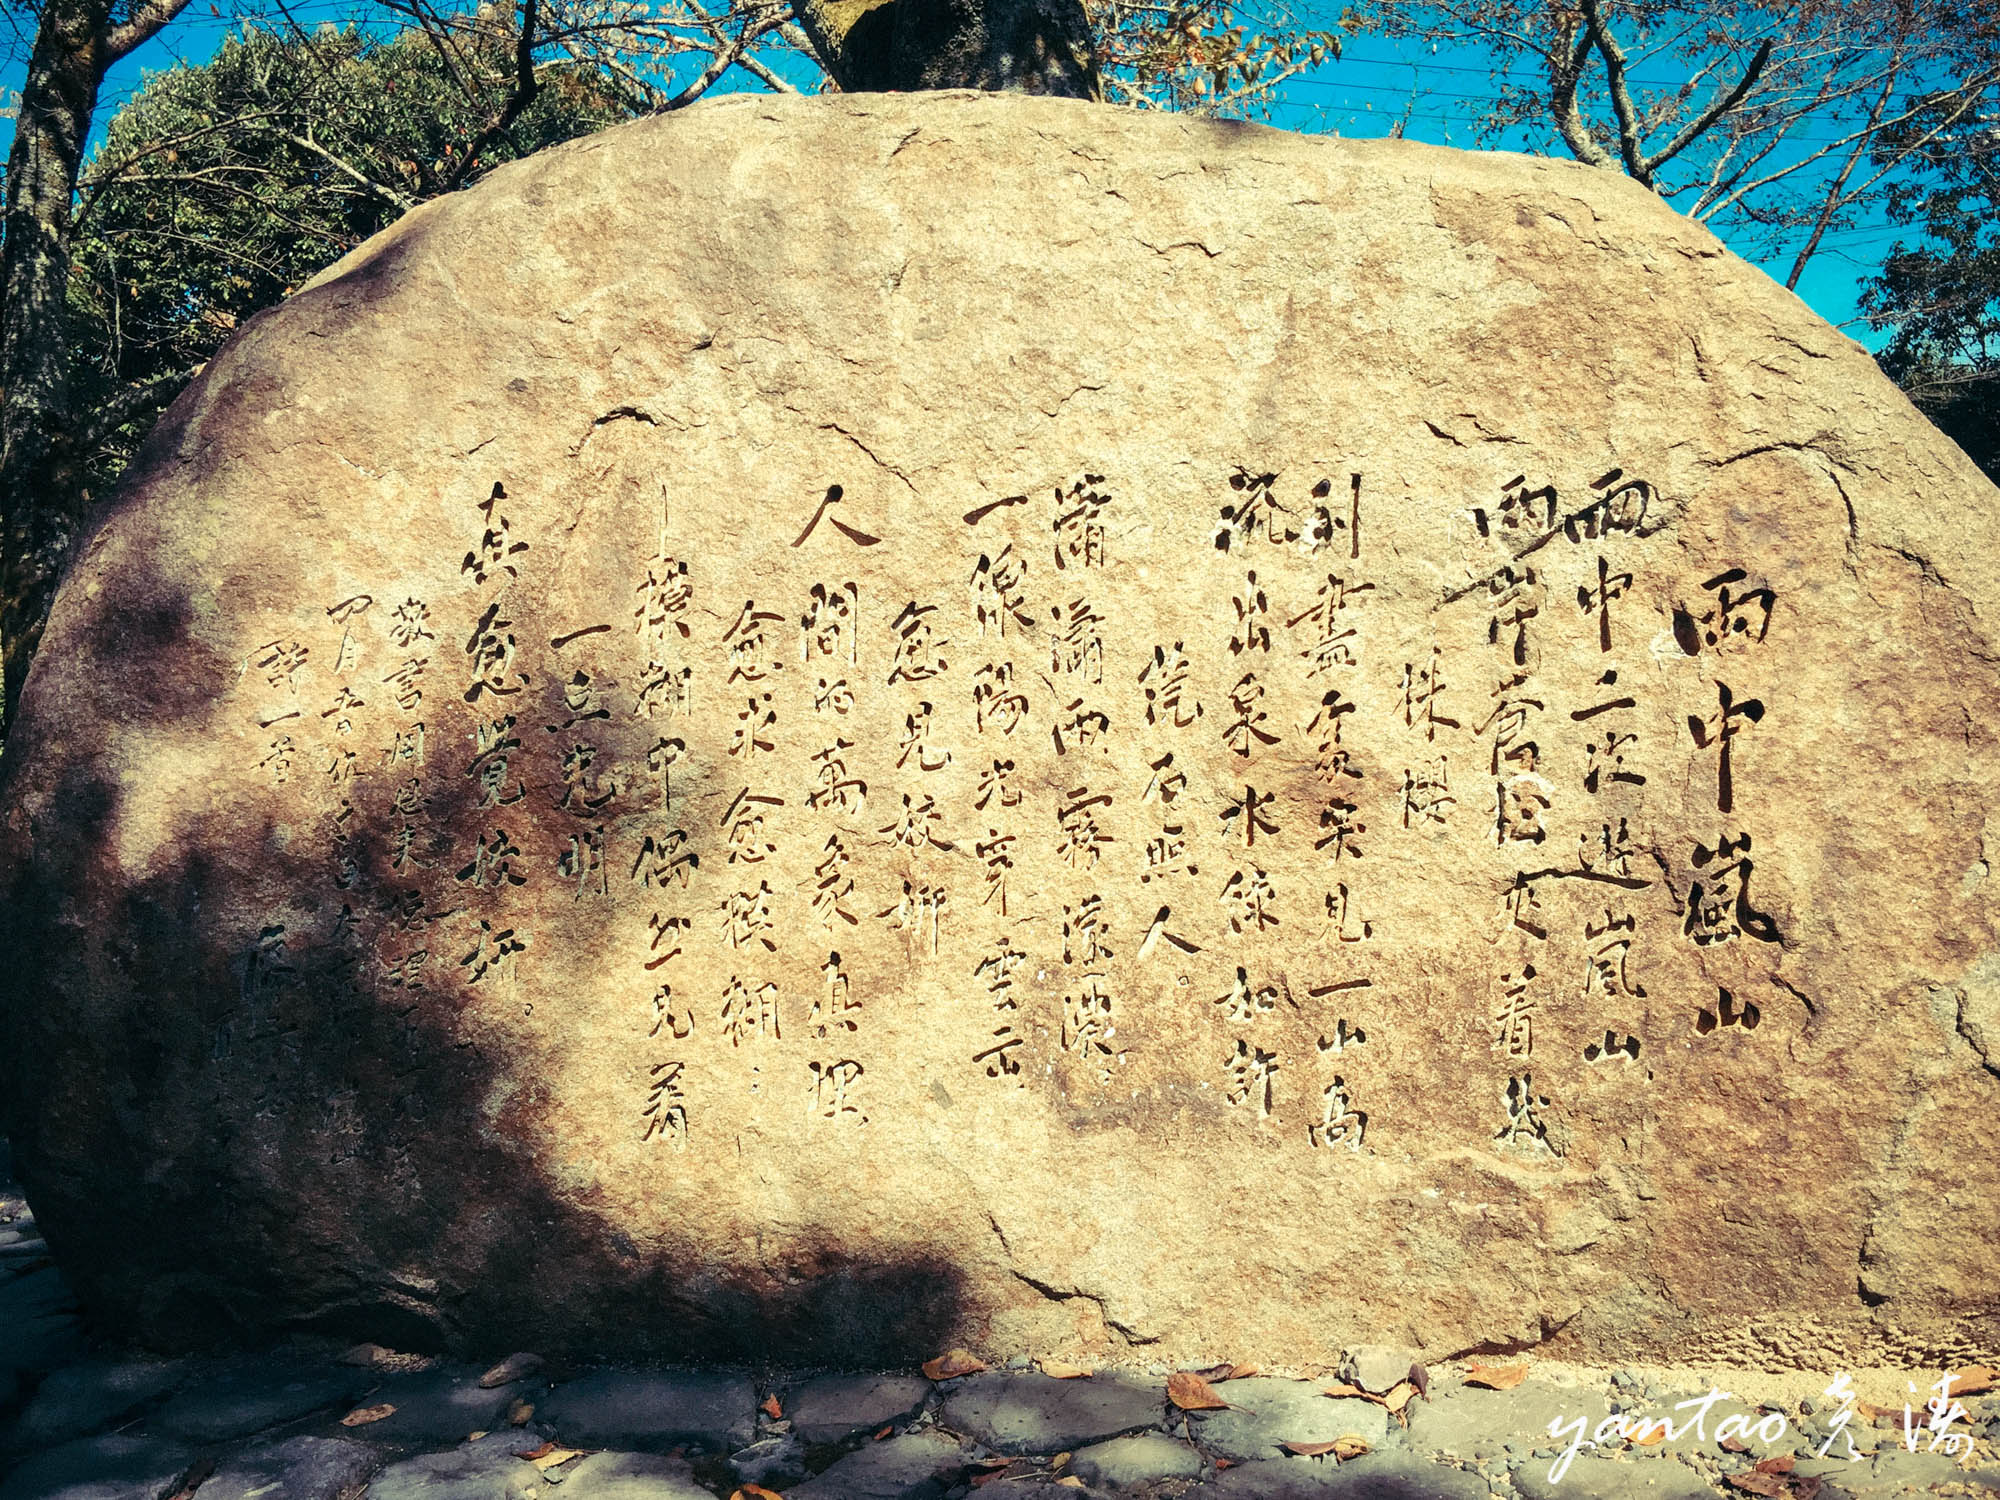 雨中嵐山
雨中二次遊嵐山
兩岸蒼松夾着幾
株櫻
到盡處突見一山高
流出泉水綠如許
繞石照人。
瀟瀟雨霧濛濃
一線陽光穿雲出
愈見姣妍
人間的萬象真理
愈求愈模糊
模糊中偶然見着
一点光明
真愈覺姣妍。
敬書周恩來總理一九一九年
四月五日
詩一首
廖承志
yantao 炎涛